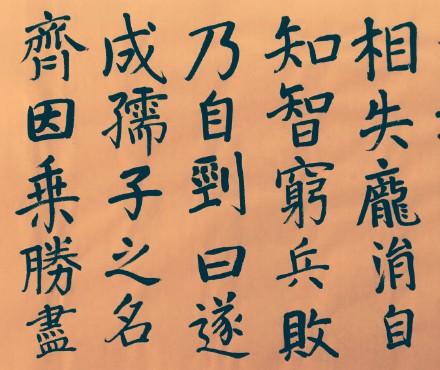 相失龐涓自
知智窮兵敗
乃自剄曰遂
成孺子之名
齊因乗勝盡